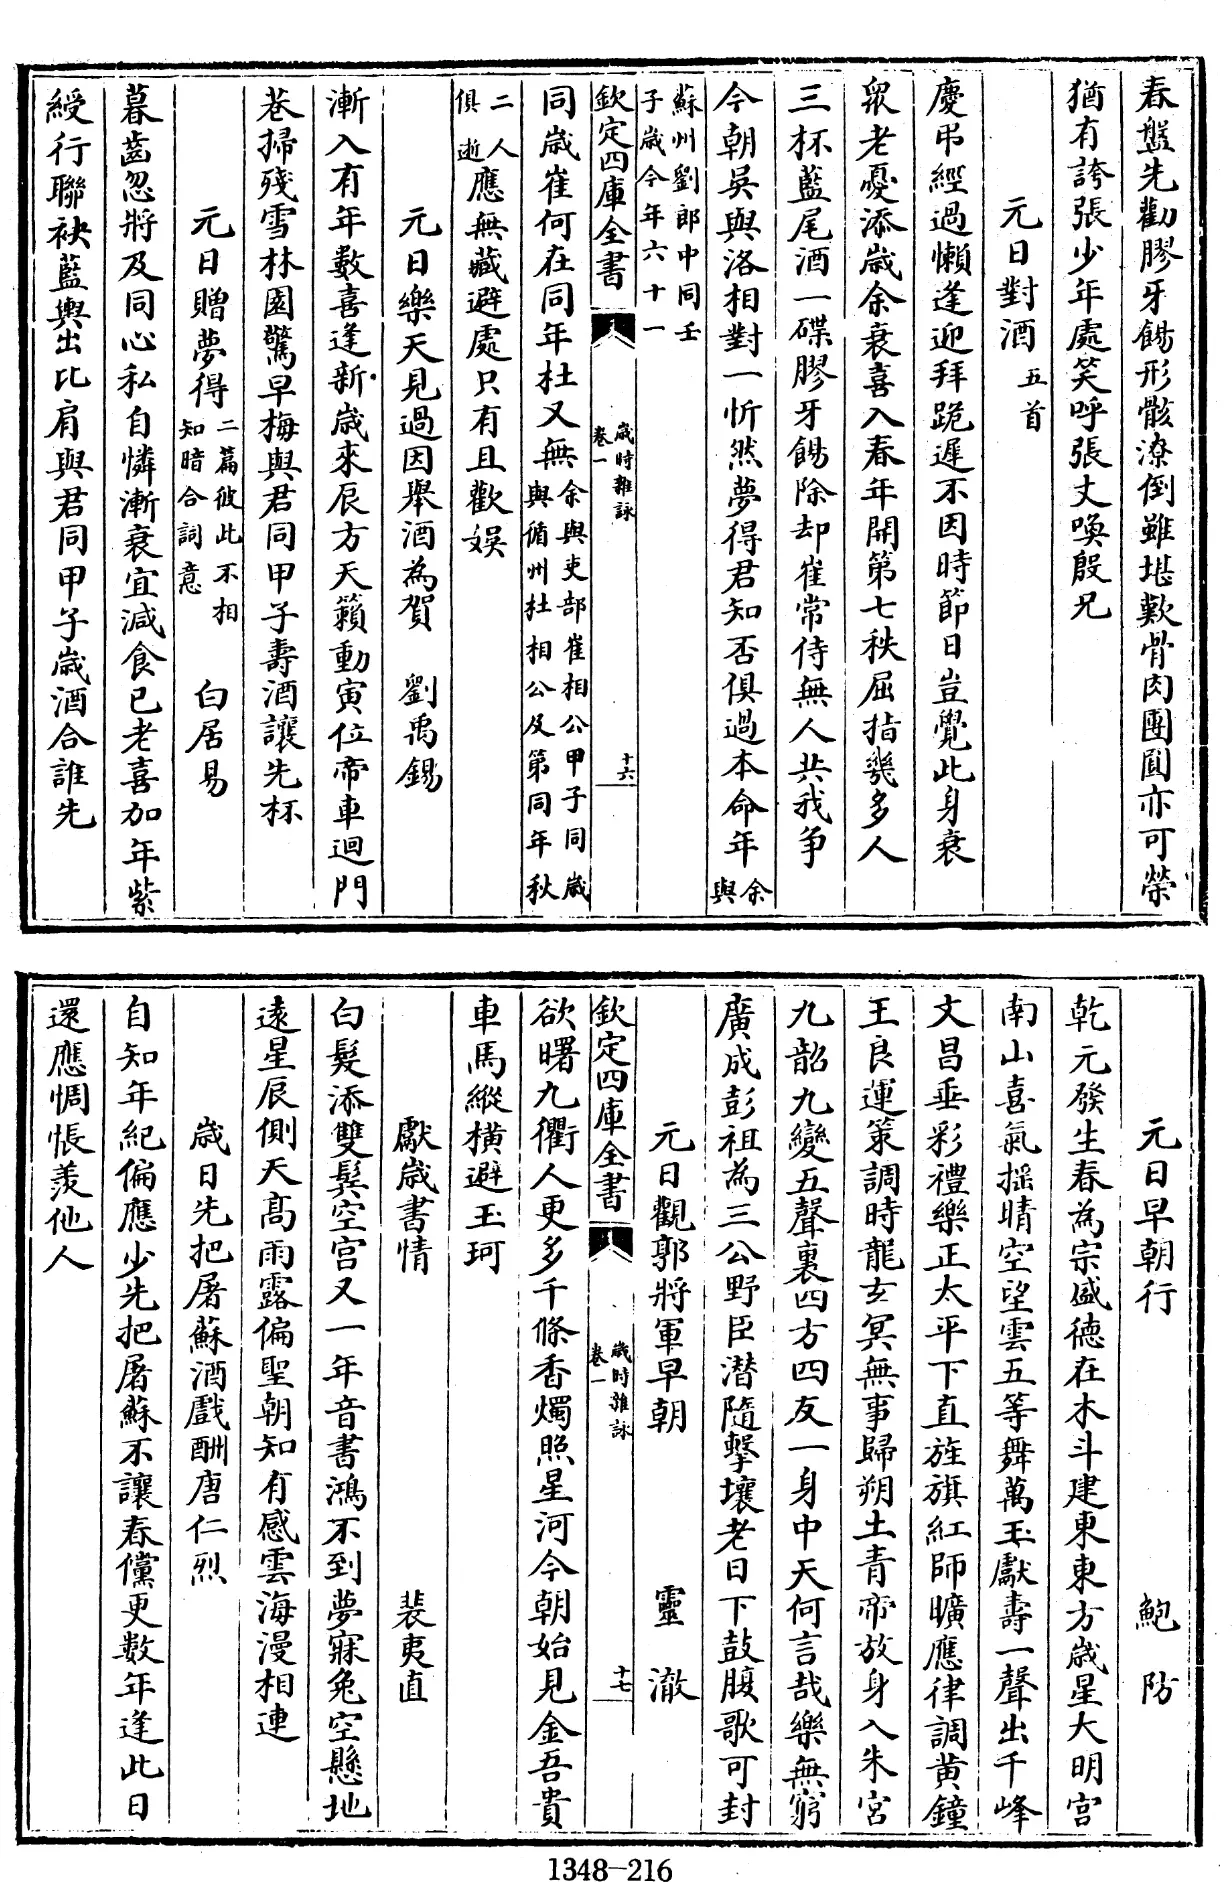 春盤先勸膠牙餳形骸潦倒雖堪歎骨肉團圓亦可榮
猶有誇張少年處笑呼張丈喚殷兄
元日對酒五首
慶弔經過懶逢迎拜跪遲不因時節日豈覺此身衰
衆老憂添歲余衰喜入春年開第七秩屈指幾多人
三杯藍尾酒一碟膠牙餳除却崔常侍無人共我爭
今朝吳與洛相對一忻然夢得君知否俱過本命年余與
蘇州劉郎中同壬子歲今年六十一
欽定四庫全書
歲時雜詠
卷一
十六
同歲崔何在同年杜又無余與吏部崔相公甲子同歲與循州杜相公及第同年秋
二人俱逝應無藏避處只有且歡娛
元日樂天見過因舉酒為賀 劉禹錫
漸入有年數喜逢新歲來辰方天籟動寅位帝車迴門
巷掃殘雪林園驚早梅與君同甲子壽酒讓先杯
元日贈夢得二篇彼此不相知暗合詞意 白居易
暮齒忽將及同心私自憐漸衰宜減食已老喜加年紫
綬行聯袂藍輿出比肩與君同甲子歲酒合誰先
元日早朝行 鮑防
乾元發生春為宗盛德在木斗建東東方歲星大明宮
南山喜氣揺晴空望雲五等舞萬玉獻壽一聲出千峰
文昌垂彩禮樂正太平下直旌旗紅師曠應律調黄鐘
王良運策調時龍玄冥無事歸朔土青帝放身入朱宮
九韶九變五聲裏四方四友一身中天何言哉樂無窮
廣成彭祖為三公野臣潛隨擊壤老日下鼓腹歌可封
元日觀郭將軍早朝 靈澈
欽定四庫全書
歲時雜詠
卷一
十七
欲曙九衢人更多千條香燭照星河今朝始見金吾貴
車馬縱橫避玉珂
獻歲書情 裴夷直
白髮添雙鬂空宮又一年音書鴻不到夢寐兔空懸地
遠星辰側天髙雨露偏聖朝知有感雲海漫相連
歲日先把屠蘇酒戲酬唐仁烈
自知年紀偏應少先把屠蘇不讓春儻更數年逢此日
還應惆悵羨他人
1348-216